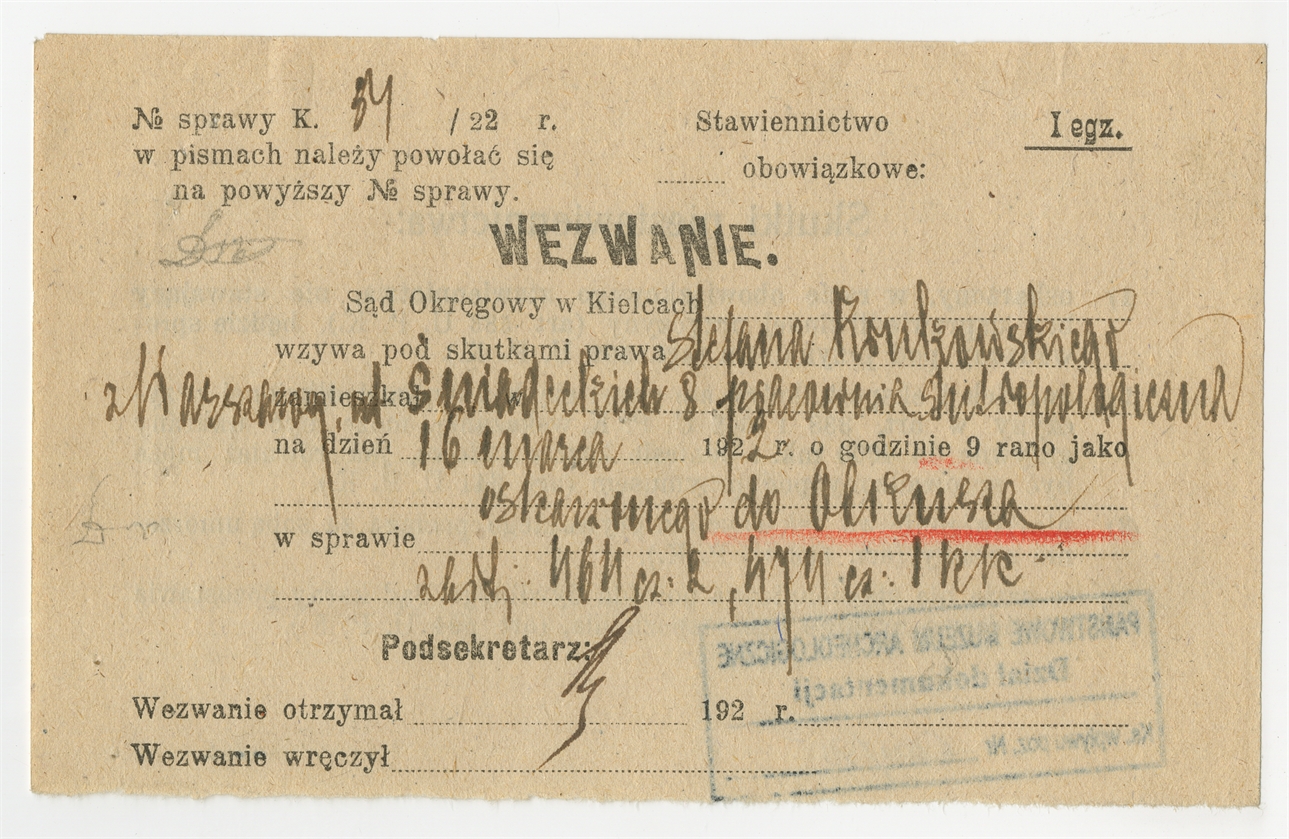 № sprawy K. 34 /22 r.
w pismach należy powołać się
na powyższy № sprawy.
Stawiennictwo
obowiązkowe:
I egz.
WEZWANIE.
Sąd Okręgowy w Kielcach
wzywa pod skutkami prawa Stefana Krukowskiego
zamieszkał w z Warszawy ul Śniadeckich 8 pracownia Antropologiczna
na dzień 16 marca 1922 r. o godzinie 9 rano jako
oskarżonego do Olkusza
w sprawie
z art. 464 cz. 2, 474 cz. 1 kk
Podsekretarz:
Wezwanie otrzymał 192 r.
Wezwanie wręczył
PAŃSTWOWE MUZEUM ARCHEOLOGICZNE
Dział dokumentacji